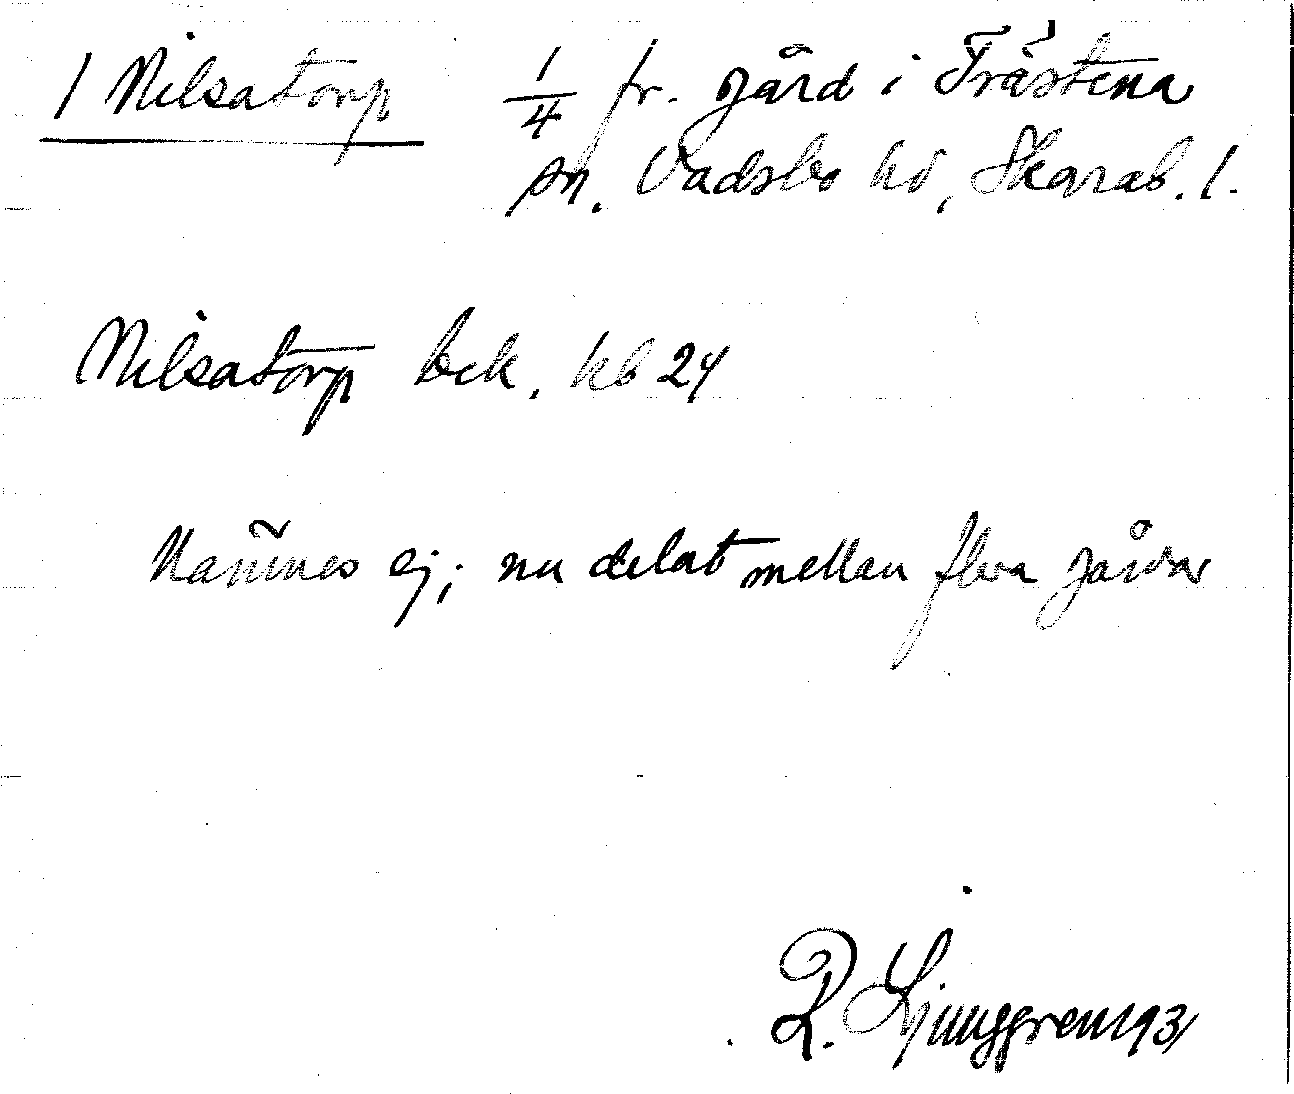 1 Nilsatorp 1/4 fr. gård i Trästena
sn. Vadsbo hd, Skarab. l.
Nilsatorp bek. kb 24
Kännes ej; nu delat mellan flera gårdar
R. Ljunggren 1931